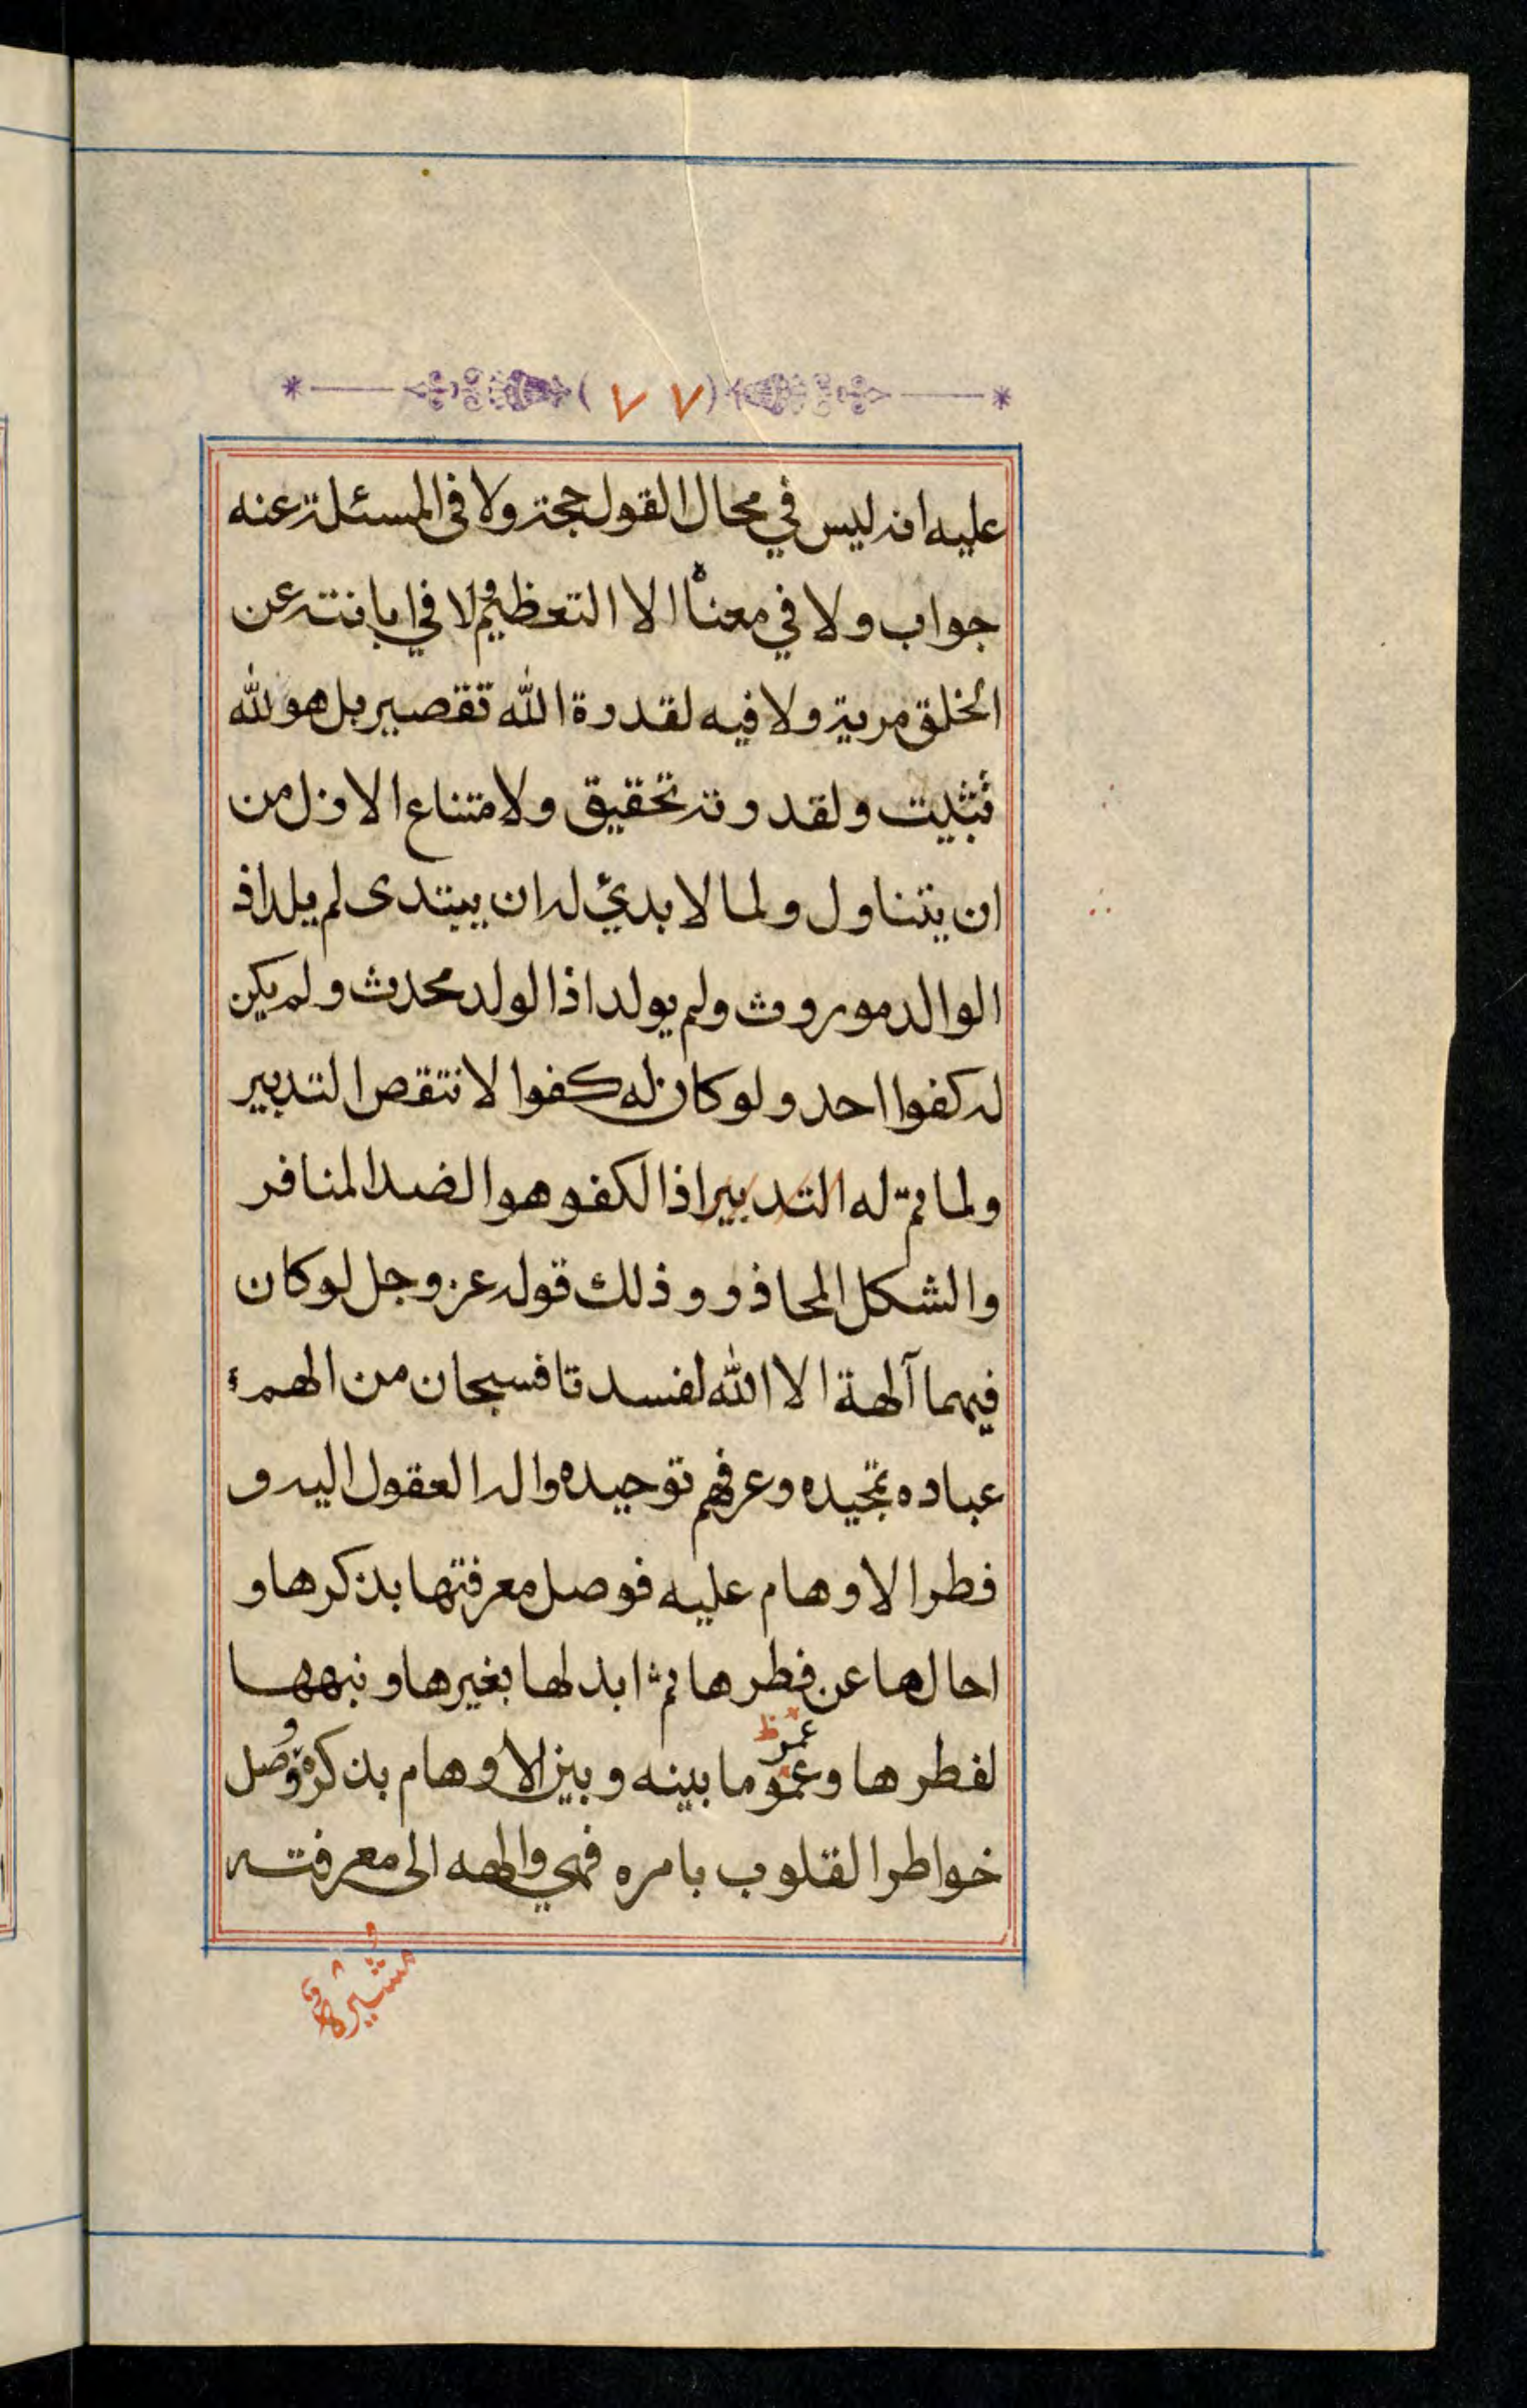 (٧٧)
عليه انه ليس في محال القول حجة ولا فى المسئلة عنه
جواب ولا في معناه الا التعظيم ولا في ابانته عن
الخلق مرية ولا فيه لقدرة الله تقصير بل هو لله
تثبيت ولقدرته تحقيق ولامتناع الازل من
ان يتناول ولما لا بديئ له ان يبتدى لم يلد اذ
الوالد موروث ولم يولد اذا لولد محدث ولم يكن
له كفوا احد ولو كان له كفوا لانتقص التدبير
ولما تم له التدبير اذا لكفو هو الضد المنافر
والشكل المحاذر وذلك قوله عز وجل لو كان
فيهما آلهة الا الله لفسدتا فسبحان من الهم
عباده تمجيده وعرفهم توحيده واله العقول اليه و
فطر الاوهام عليه فوصل معرفتها بذكرها و
احالها عن فطرها ثم ابدلها بغيرها ونبهها
لفطرها وعمو ما بينه وبين الاوهام بذكره ووصل
عمر ظ
خواطر القلوب بامره فهي والهه الى معرفته
مشيرة